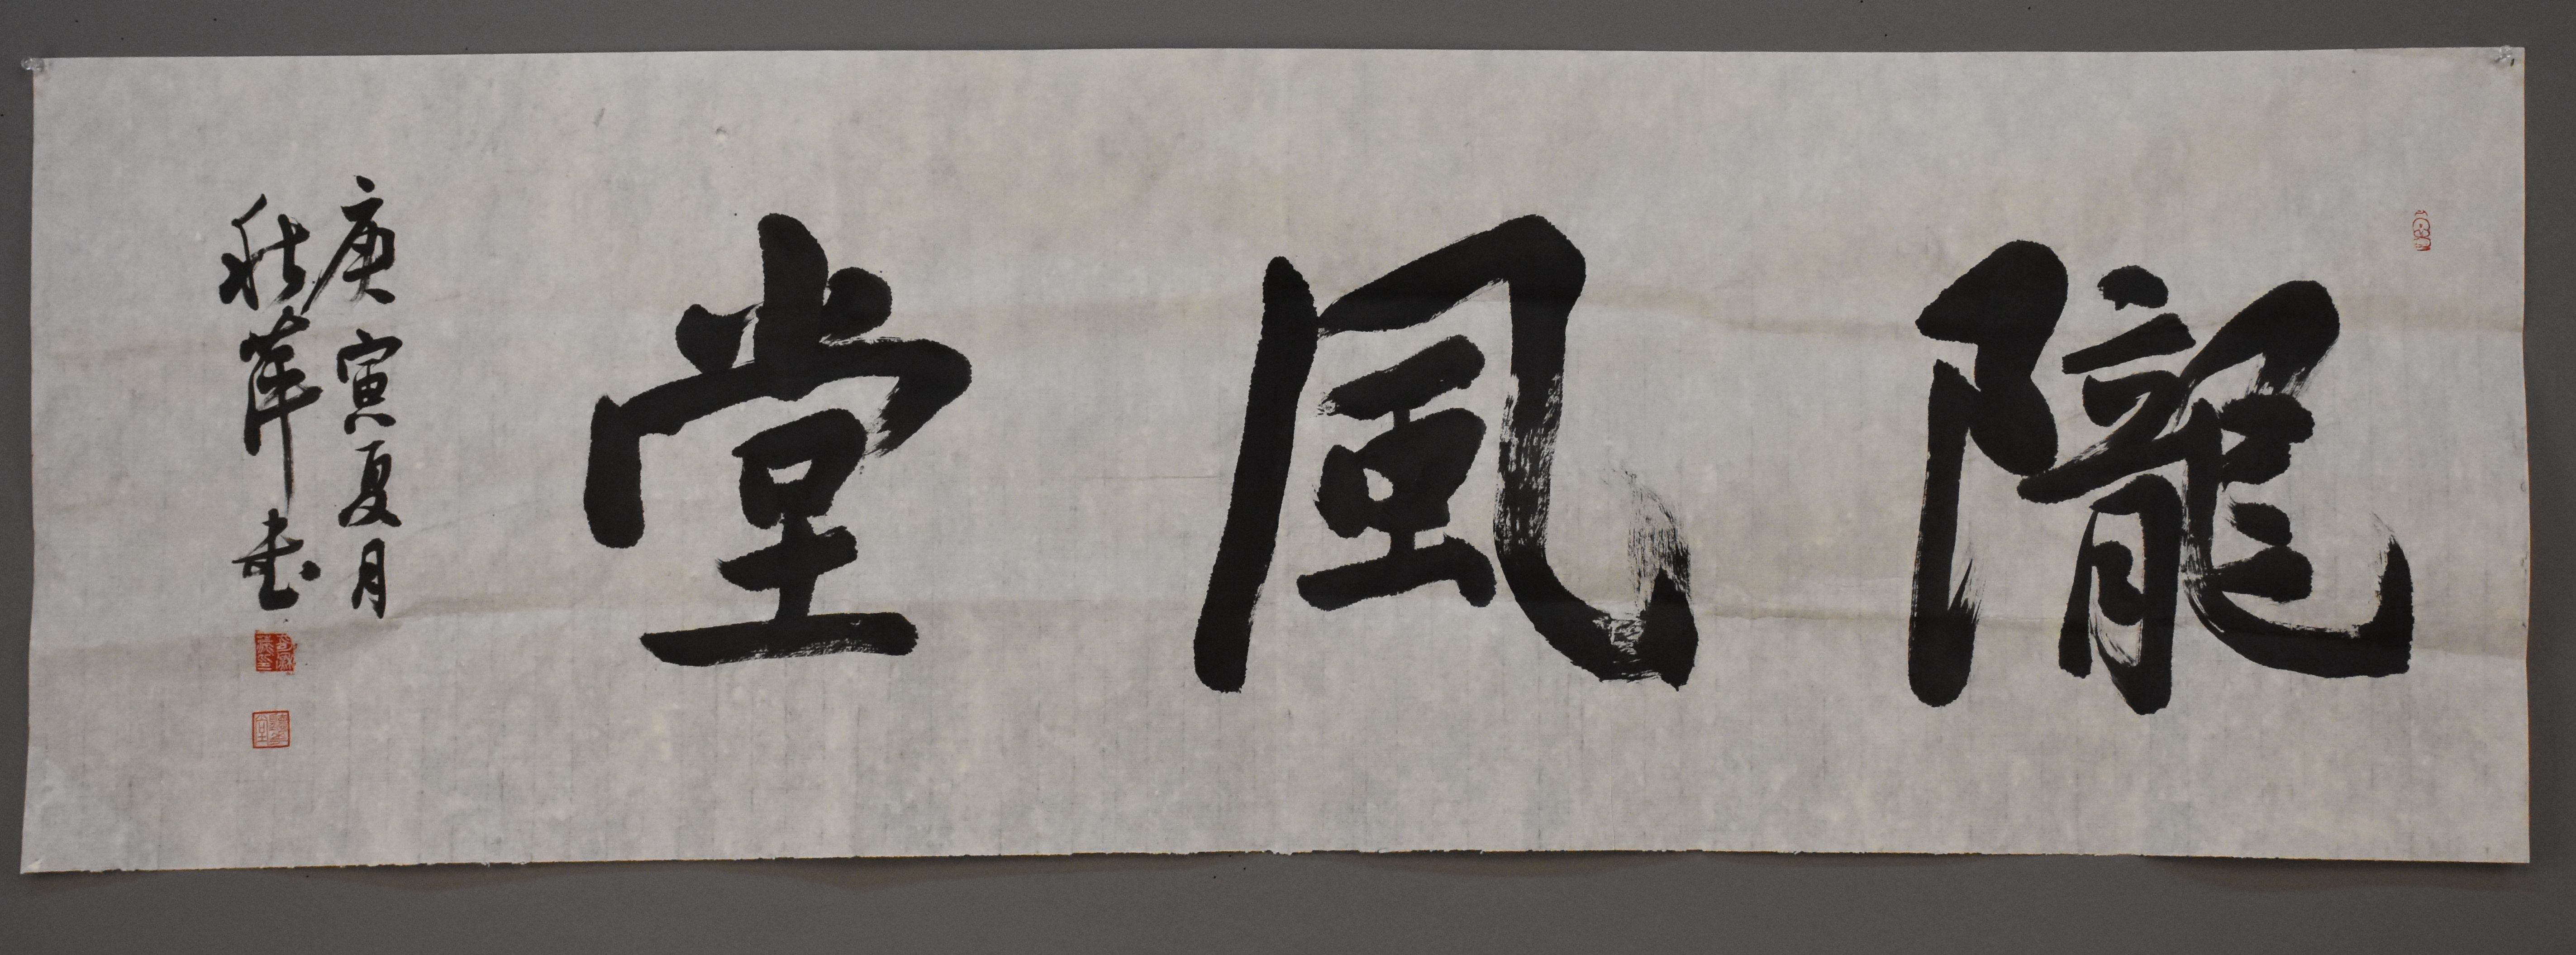 隴風堂
庚寅夏月
秋萍书